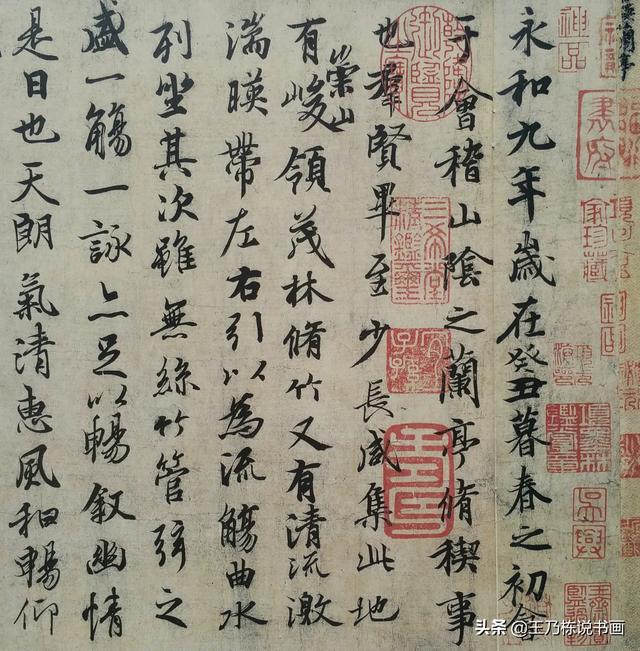 永和九年歲在癸丑暮春之初會
于會稽山陰之蘭亭脩稧事
也羣賢畢至少長咸集此地
有崇山峻領茂林脩竹又有清流激
湍暎帶左右引以為流觴曲水
列坐其次雖無絲竹管弦之
盛一觴一詠亦足以暢敘幽情
是日也天朗氣清惠風和暢仰
神品
三希堂精鑑璽
宜子孫
吳興
头条 @王乃栋说书画